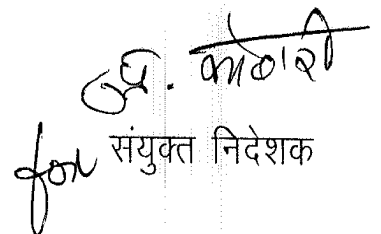 कोठारी
for संयुक्त निदेशक